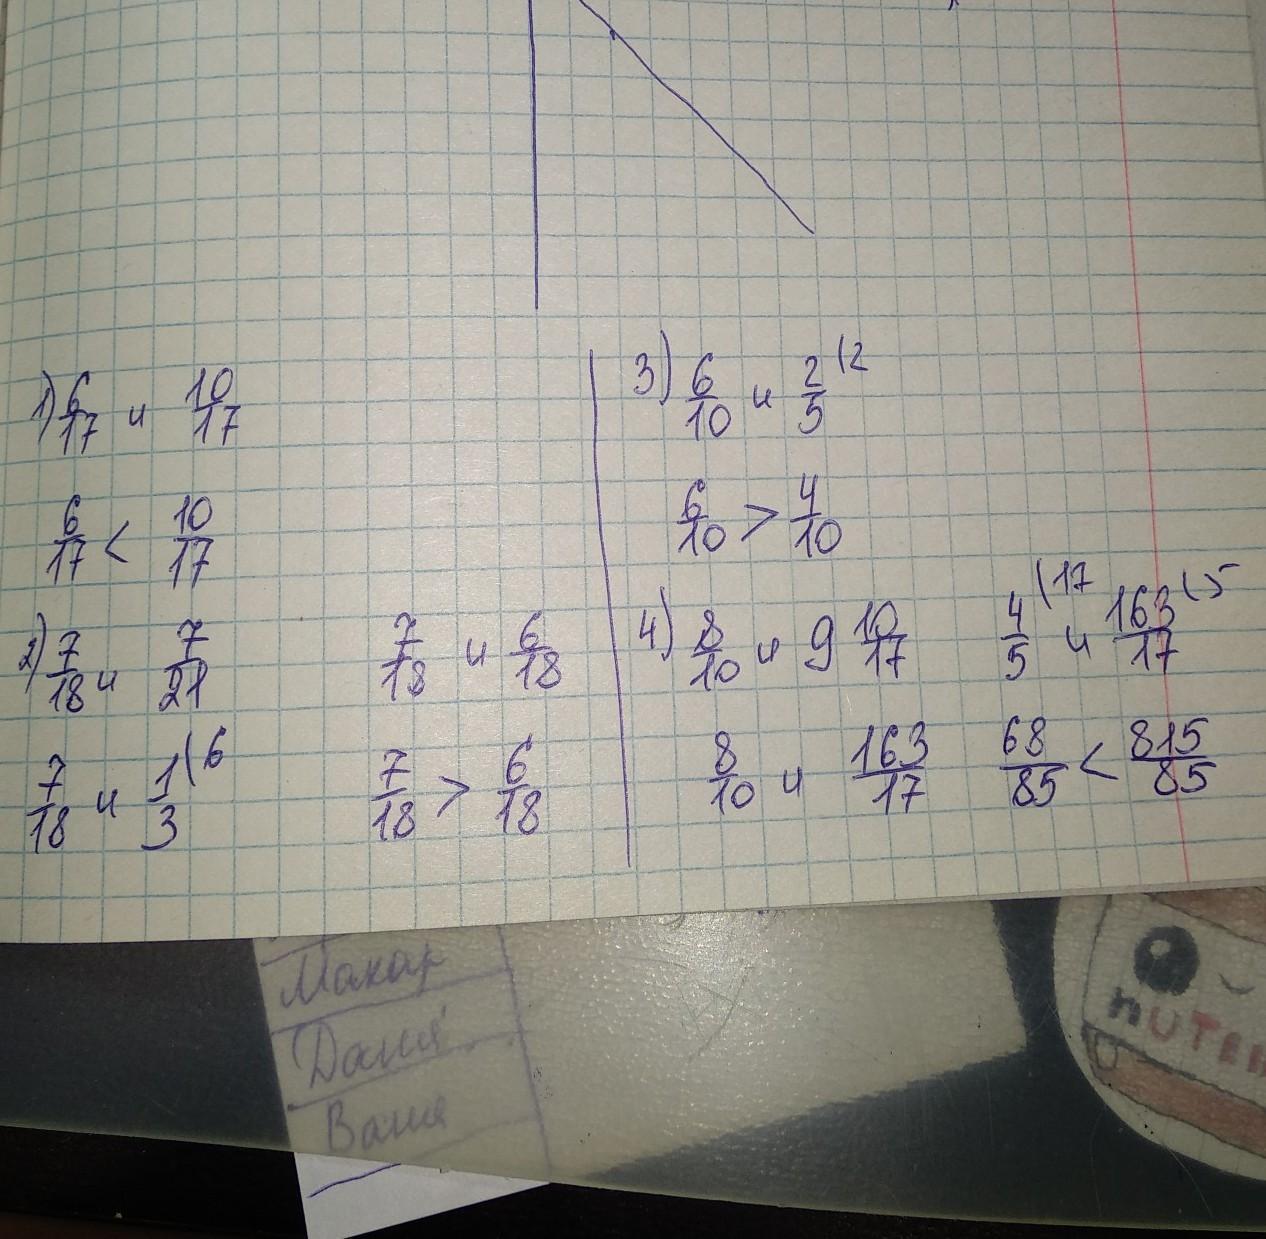 1) 6/17 и 10/17
6/17 < 10/17
2) 7/18 и 7/21
7/18 и 1/3 (6
7/18 и 6/18
7/18 > 6/18
3) 6/10 и 2/5 (2
6/10 > 4/10
4) 8/10 и 9 10/17
8/10 и 163/17
4/5 (17 и 163/17 (5
68/85 < 815/85
Макар
Даня
Ваня